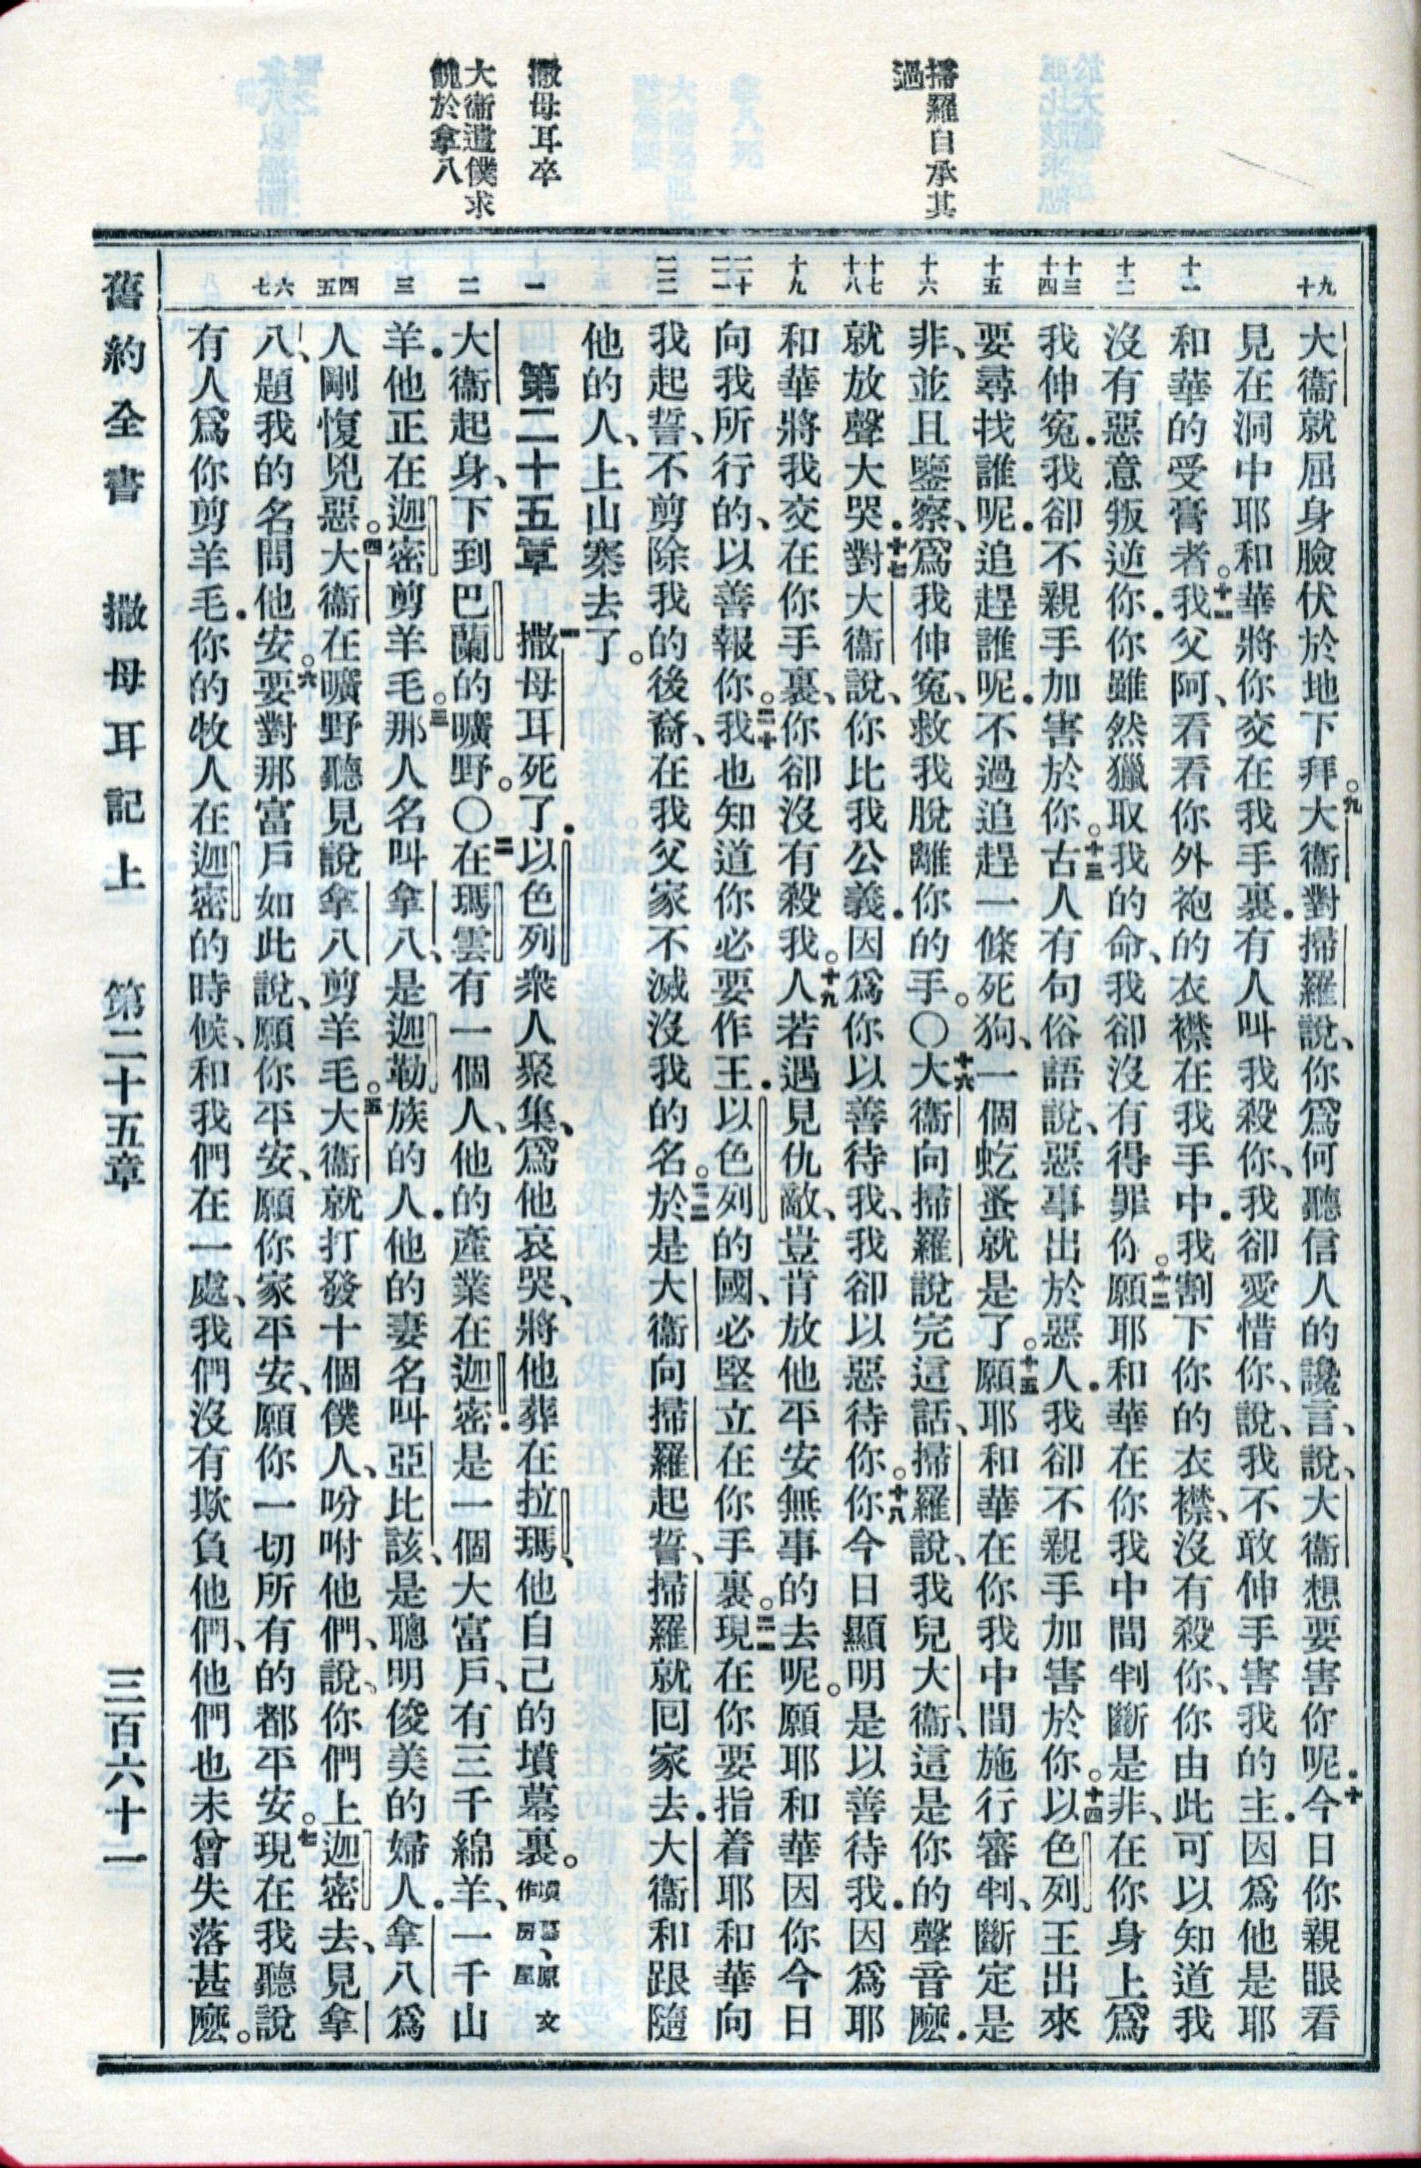 掃羅自承其
過
撒母耳卒
大衞遣僕求
餽於拿八
九 十
十一
十二
十三 十四
十五
十六
十七 十八
十九
二十 二一
二二
一
二
三
四 五
六 七
大衞就屈身臉伏於地下拜。九大衞對掃羅說、你爲何聽信人的讒言、說、大衞想要害你呢．十今日你親眼看
見在洞中耶和華將你交在我手裏．有人叫我殺你、我卻愛惜你、說、我不敢伸手害我的主．因爲他是耶
和華的受膏者。十一我父阿、看看你外袍的衣襟在我手中．我割下你的衣襟、沒有殺你、你由此可以知道我
沒有惡意叛逆你．你雖然獵取我的命、我卻沒有得罪你。十二願耶和華在你我中間判斷是非、在你身上爲
我伸冤．我卻不親手加害於你。十三古人有句俗語說、惡事出於惡人．我卻不親手加害於你。十四以色列王出來
要尋找誰呢．追趕誰呢．不過追趕一條死狗、一個虼蚤就是了。十五願耶和華在你我中間施行審判、斷定是
非、並且鑒察、爲我伸冤、救我脫離你的手。〇十六大衞向掃羅說完這話、掃羅說、我兒大衞、這是你的聲音麽．
就放聲大哭．十七對大衞說、你比我公義．因爲你以善待我、我卻以惡待你。十八你今日顯明是以善待我．因爲耶
和華將我交在你手裏、你卻沒有殺我。十九人若遇見仇敵、豈肯放他平安無事的去呢。願耶和華因你今日
向我所行的、以善報你。二十我也知道你必要作王．以色列的國、必堅立在你手裏。二一現在你要指着耶和華向
我起誓、不剪除我的後裔、在我父家不滅沒我的名。二二於是大衞向掃羅起誓、掃羅就回家去．大衞和跟隨
他的人、上山寨去了。
第二十五章 一撒母耳死了．以色列衆人聚集、爲他哀哭、將他葬在拉瑪、他自己的墳墓裏。墳墓、原文作房屋
大衞起身、下到巴蘭的曠野。〇二在瑪雲有一個人、他的產業在迦密．是一個大富戶、有三千綿羊、一千山
羊．他正在迦密剪羊毛。三那人名叫拿八、是迦勒族的人．他的妻名叫亞比該、是聰明俊美的婦人．拿八爲
人剛愎兇惡。四大衞在曠野聽見說拿八剪羊毛。五大衞就打發十個僕人、吩咐他們、說、你們上迦密去、見拿
八、題我的名問他安。六要對那富戶如此說、願你平安、願你家平安、願你一切所有的都平安。七現在我聽說
有人爲你剪羊毛．你的牧人在迦密的時候、和我們在一處、我們沒有欺負他們、他們也未曾失落甚麽。
舊約全書 撒母耳記上 第二十五章 三百六十一